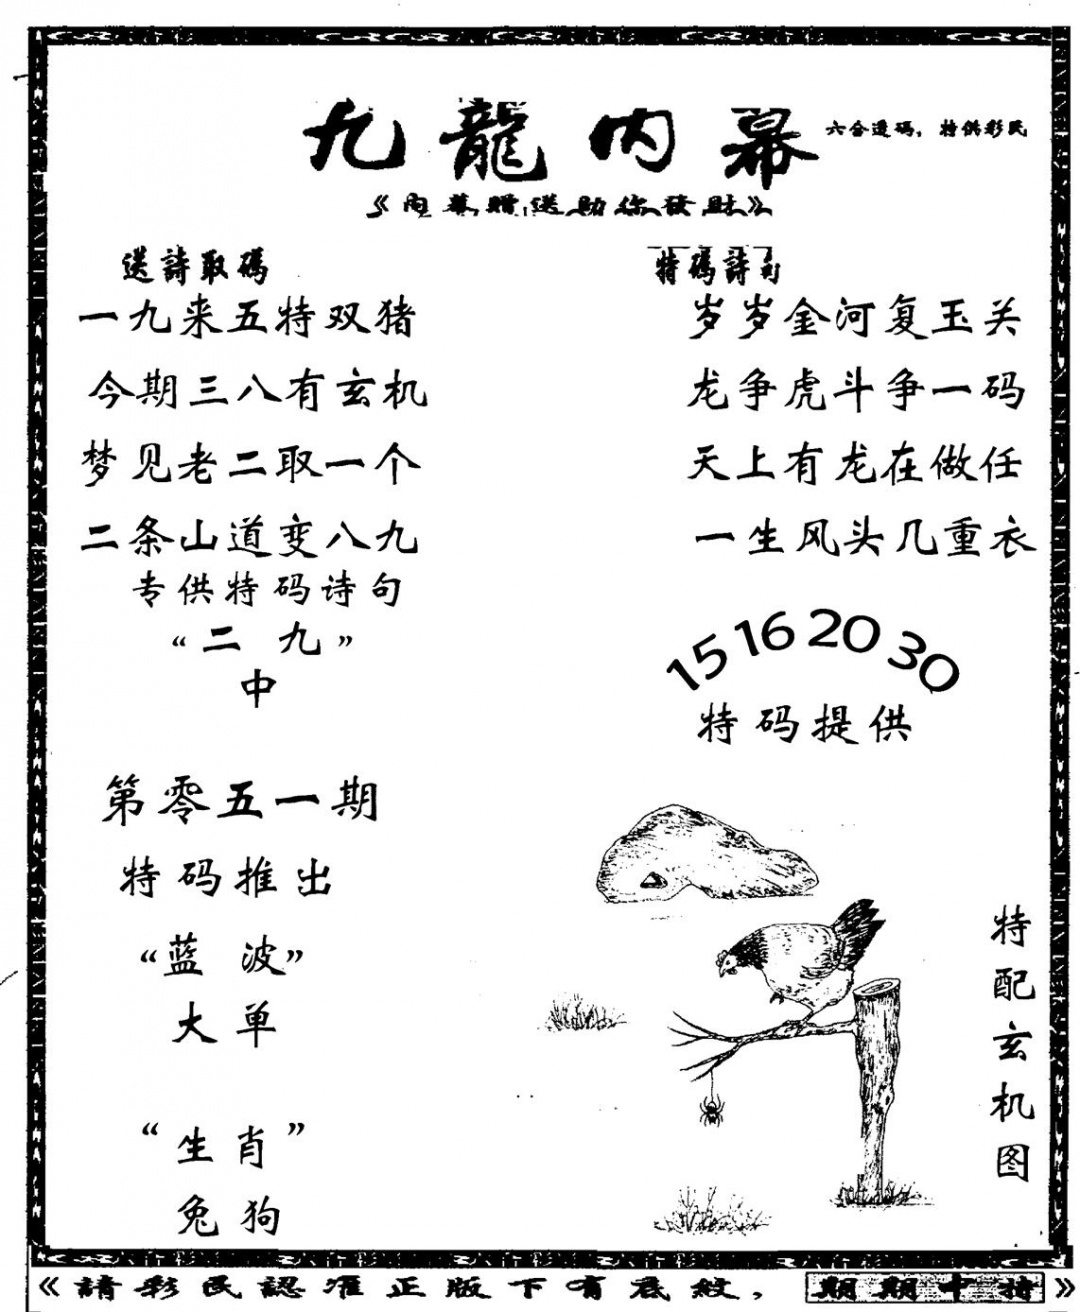 九龍内幕
六合透码，特供彩民
《内幕贈送助你發財》
送詩取碼
一九来五特双猪
今期三八有玄机
梦见老二取一个
二条山道变八九
专供特码诗句
“二九”
中
第零五一期
特码推出
“蓝波”
大单
“生肖”
兔狗
特碼詩句
岁岁金河复玉关
龙争虎斗争一码
天上有龙在做任
一生风头几重衣
15 16 20 30
特码提供
特配玄机图
《請彩民認准正版下有底紋，期期中特》